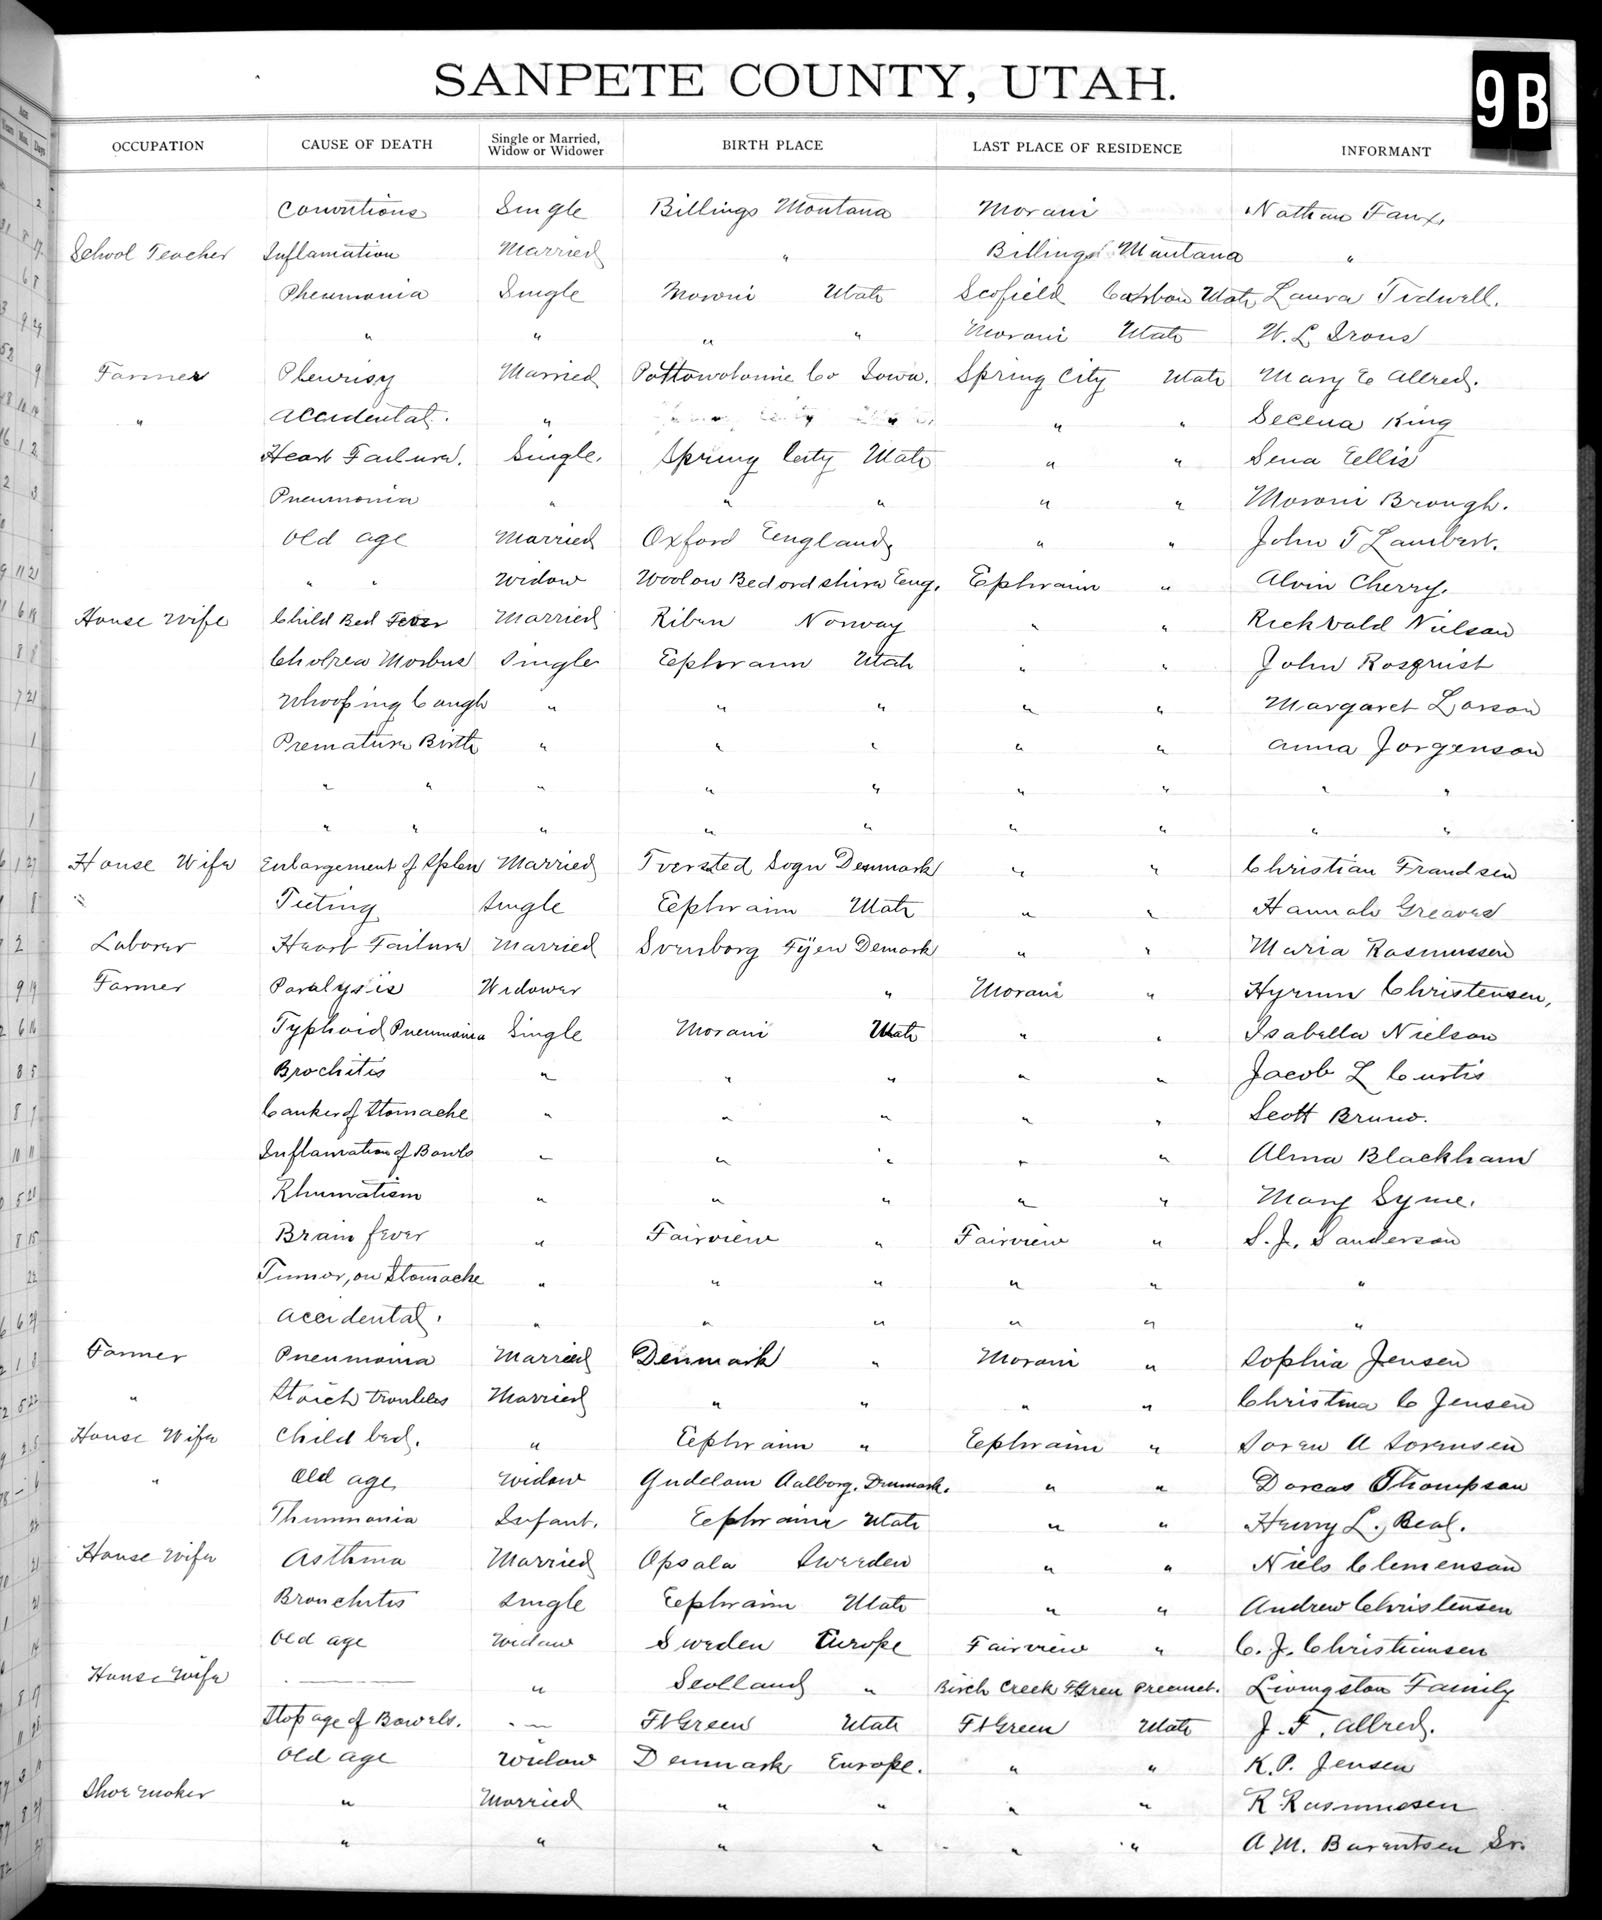 SANPETE COUNTY, UTAH.
9B
OCCUPATION CAUSE OF DEATH Single or Married, Widow or Widower BIRTH PLACE LAST PLACE OF RESIDENCE INFORMANT
Single Billings Montana Moroni Nathan Faux
School Teacher Inflamation Married " Billings Montana "
Pheumonia Single Moroni Utah Scofield Carbon Utah Laura Tidwell.
" " " " Moroni Utah W. L Irons
Farmer Pleurisy Married Pottowotomie Co Iowa. Spring City Utah Mary E Allred.
" Accidental. " " " Secena King
Heart Failure. Single. Spring City Utah " " Sena Eellis
Pneumonia " " " " " Moroni Brough.
Old age Married Oxford Eengland, " " John T Lambert.
" " Widow Bedordshire Eeng. Eephraim " Alvin Cherry.
House Wife Child Bed Fever Married Riben Norway " " Nielson
Cholrea Morbus Single Eephraim Utah " " John Rosqvist
Whooping Cough " " " " " Margaret Larson
Premature Birth " " " " " Anna Jorgenson
" " " " " " " " "
" " " " " " " " "
House Wife Enlargement of Splen Married Tversted Sogn Denmark " " Christian Frandsen
" Teeting Single Eephraim Utah " " Hannah Greaves
Laborer Heart Failure Married Svenborg Fÿen Demark " " Maria Rasmussen
Farmer Paralysis Widower " Moroni " Hyrum Christensen,
Typhoid Pneumonia Single Moroni Utah " " Isabella Nielson
Brochitis " " " " " Jacob L Curtis
Canker of Stomache " " " " " Scott Bruno.
Inflamation of Bowls " " " " " Alma Blackham
Rhumatism " " " " " Mary Syme.
Brain fever " Fairview " Fairview " S. J. Sanderson
Tumor, on Stomache " " " " " "
Accidental. " " " " " "
Farmer Pneumoina Married Denmark " Moroni " Sophia Jensen
" troubles Married " " " " Christina C Jensen
House Wife Child bed. " Eephraim " Eephraim " Soren A Sorensen
" Old age Widow Gudelom Aalborg, Denmark. " " Dorcas Thompson
Infant. Eephraim Utah " " Henry L. Beal.
House Wife Asthma Married Opsala Sweeden " " Niels Clemenson
Bronchitis Single Eephraim Utah " " Andrew Christensen
Old age Widow Sweden Europe Fairview " C. J. Christiansen
House Wife " Scotland " Birch Creek Ft Green Precinct. Livingston Family
Stopage of Bowels. Ft Green Utah Ft Green Utah J. F. Allred.
Old age Widow Denmark Europe. " " K. P. Jensen
Shoe Maker " Married " " " " R Rasmussen
" " " " " " A. M. Barentsen Sr.